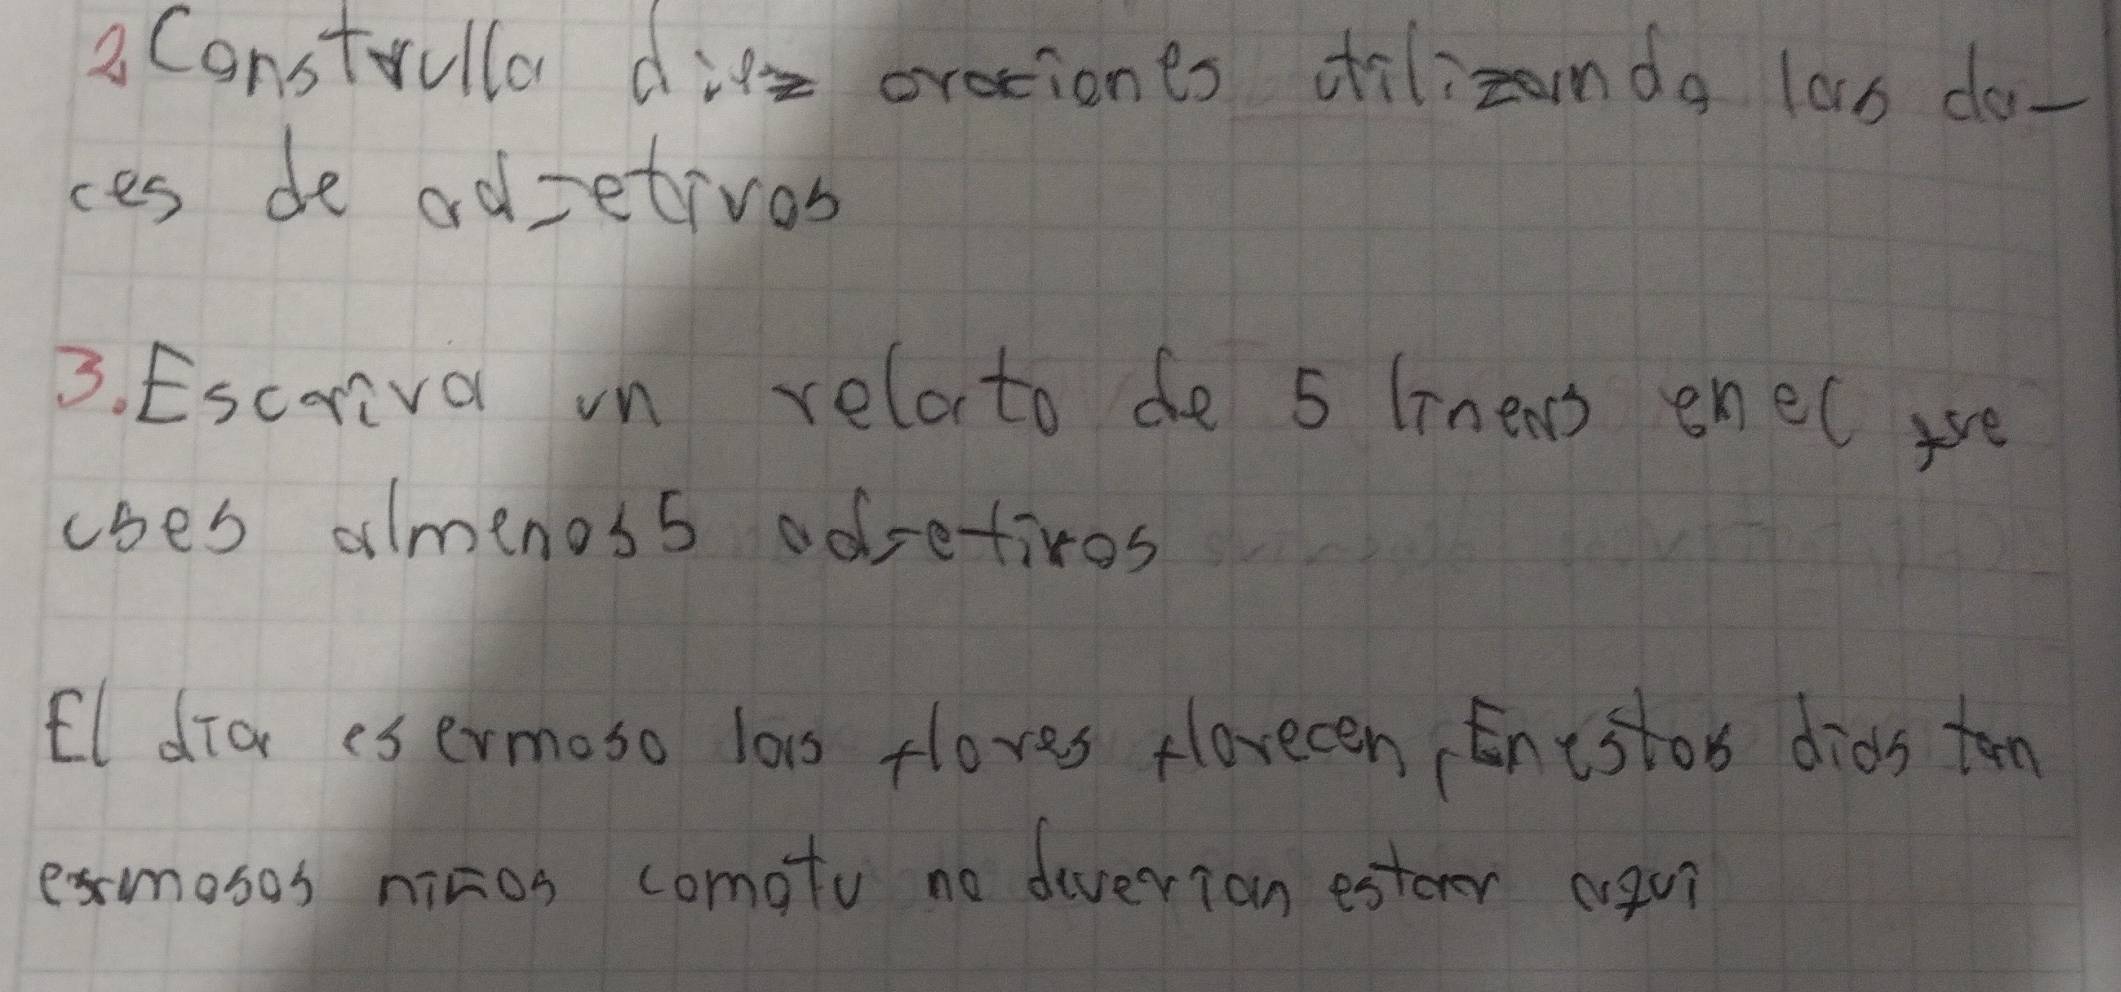 2. Construlla diez oraciones utilizando las da-
ces de adjetivos
3. Escriva un relato de 5 lineas en el que
uses almenos 5 adjetivos
El dia es ermoso las flores florecen, En estos dias tan
ermosos niños como tu no deverian estar aqui